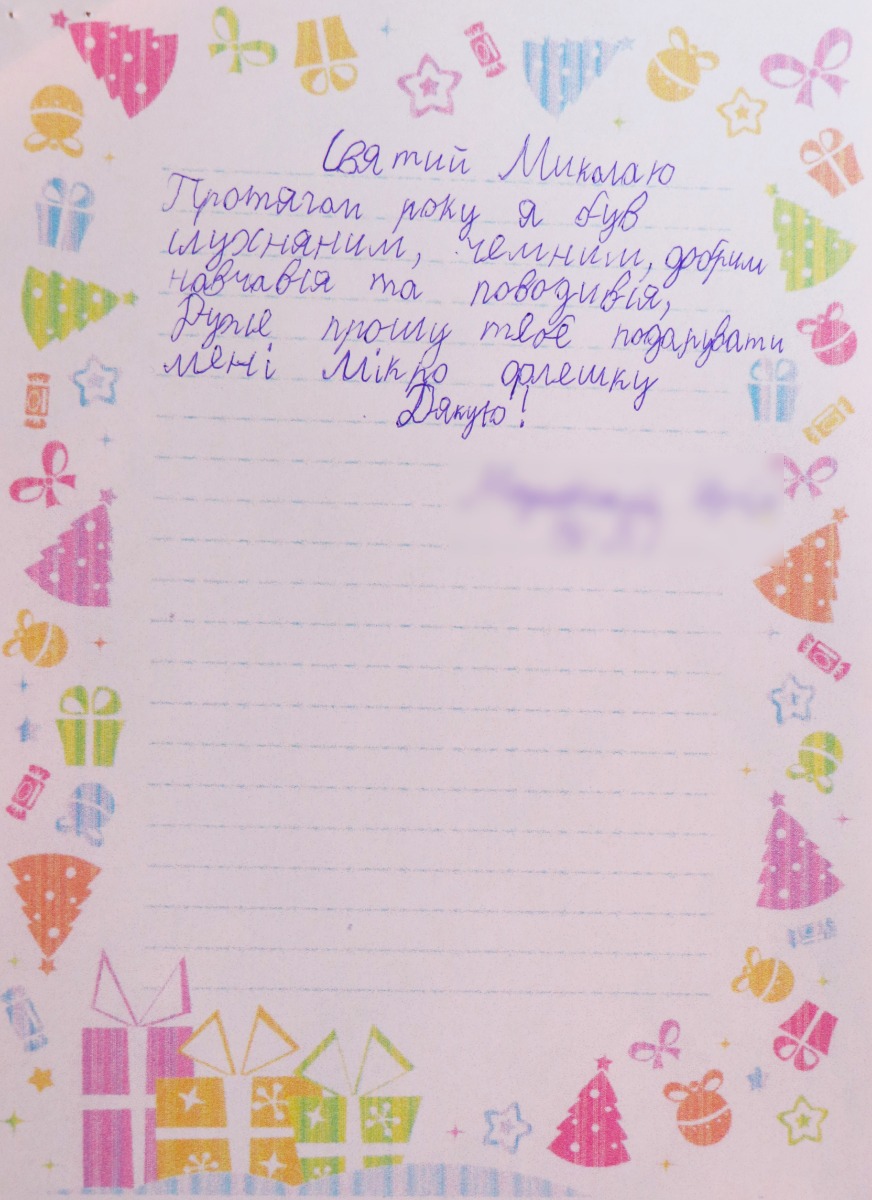 Святий Миколаю
Протягом року я був
слухняним, чемним, добрим
навчався та поводився,
Дуже прошу тебе подарувати
мені Мікро флешку
Дякую!